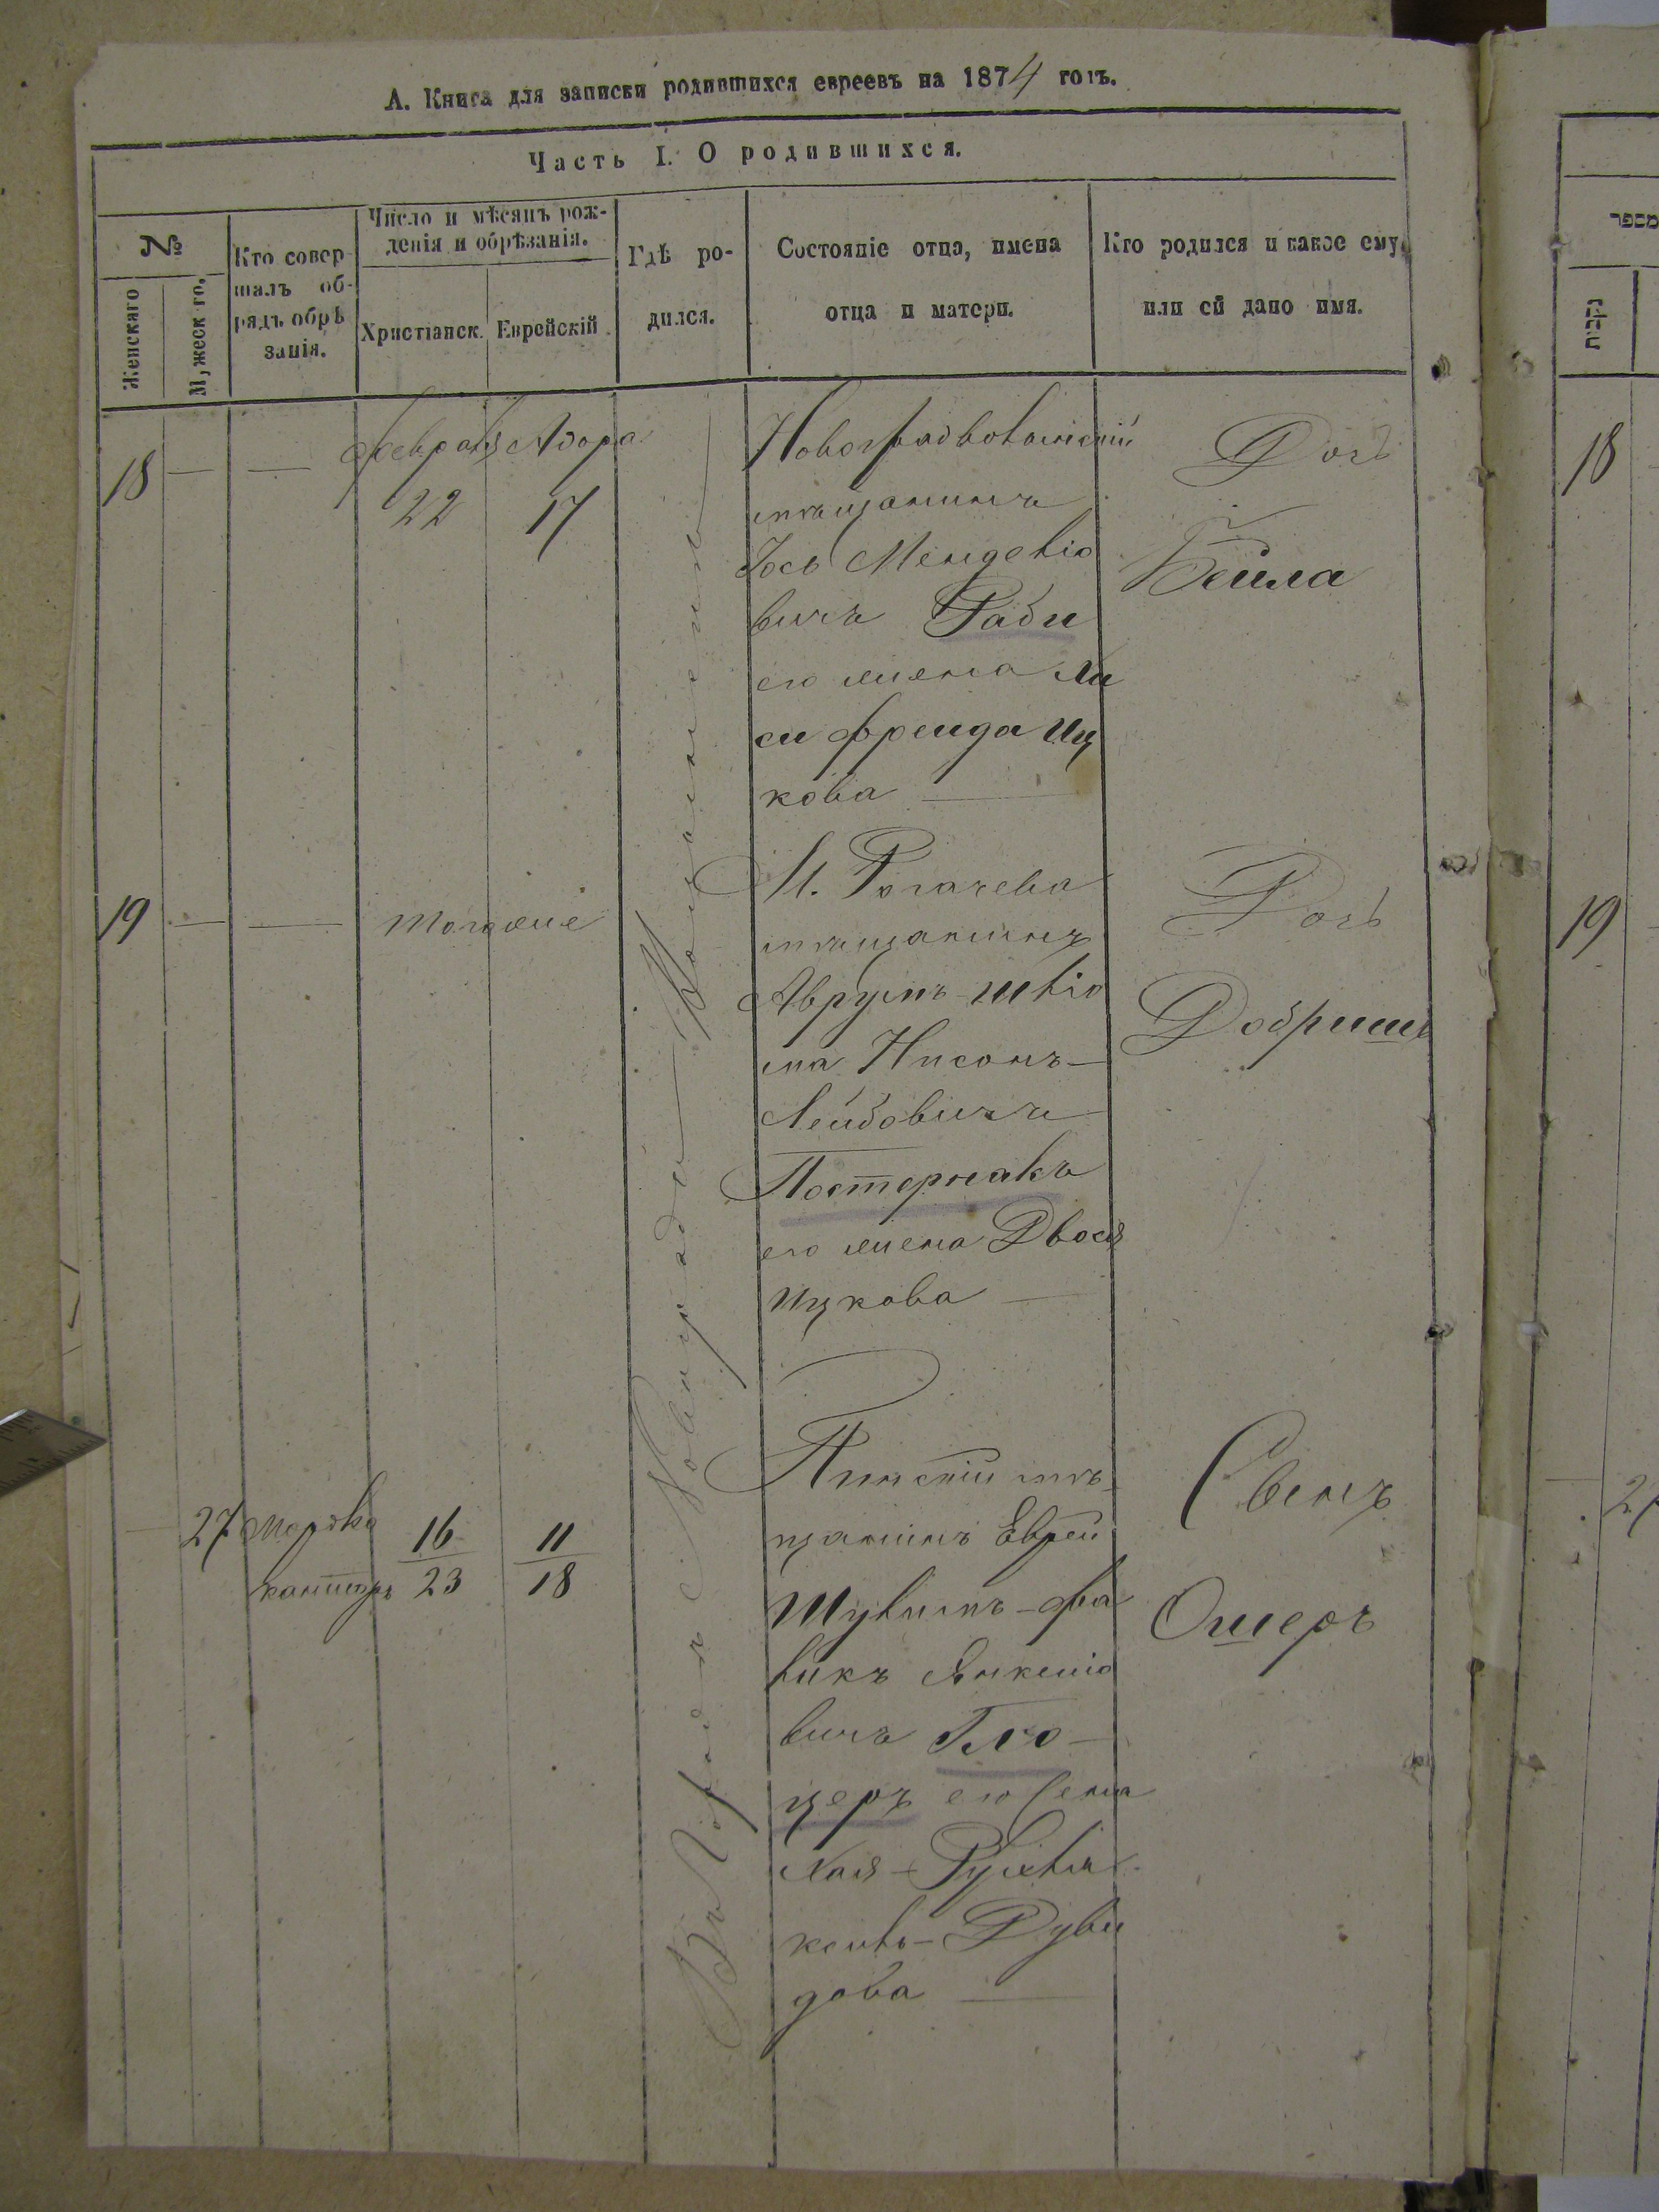 А. Книга для записки родившихся евреевъ на 1874 годъ.
Часть I. О родившихся.
№
Женскаго
Мужескаго.
Кто совер-
шалъ об-
рядъ обрѣ
занія.
Число и мѣсяцъ рож-
денія и обрѣзанія.
Христіанск.
Еврейскій.
Гдѣ ро-
дился.
Состояніе отца, имена
отца и матери.
Кто родился и какое ему
или ей дано имя.
Въ Городѣ Новоградѣ Волынскѣ
18
Февраля
22
Адора
17
Новоградволынскій
мѣщанинъ
Іось Менделіо
вичъ Раби
его жена Ха
си Фрейда Иц
кова
Дочь
Бейла
19
Тогоже
М. Рогачева
мѣщанинъ
Аврумъ-Шліо
ма Нисонъ-
Лейбовичъ
Постернакъ
его жена Двося
Ицкова
Дочь
Добришъ
27
Мордко
кантеръ
16
23
11
18
Пинскій мѣ-
щанинъ Еврей
Шулимъ-Фа
викъ Янкеліо
вичъ Гло-
церъ его жена
Хая-Рухля
Дуви
дова
Сынъ
Ошеръ
מספר
נקבות
18
19
27